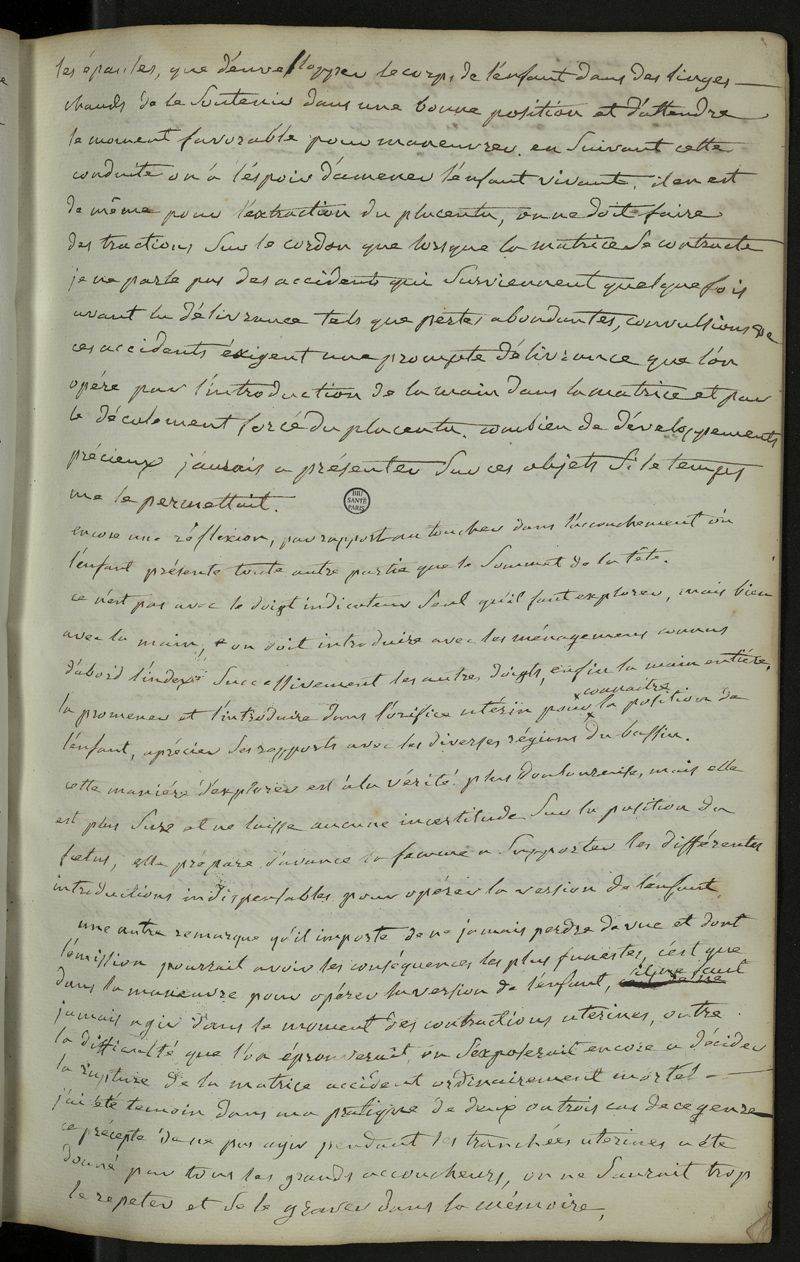 les épaules, que d'envellopper le corps de l'enfant dans des linges
chauds de le soutenir dans une bonne position et d'attendre
le moment favorable pour manœuvrer. en suivant cette
conduite on à l'éspoir d'amener l'enfant vivant. il en est
de même pour l'extraction du placenta, on ne doit faire
des tractions sur le cordon que lorsque la matrice se contracte
je ne parle pas des accidents qui surviennent quelque fois
avant la délivrance tels que pertes abondantes, convulsions &c
ces accidents éxigent une prompte délivrance que l'on
opére par l'introduction de la main dans la matrice et par
le décolement forcé du placenta. combien de dévelopements
précieux j'aurais a présenter sur ces objets si le temps
me le permettait.
BIU
SANTÉ
PARIS
encore une réflexion, par rapport au toucher dans l'accouchement ou
l'enfant présente toute autre partie que le sommet de la tête.
ce n'est pas avec le doigt indicateur seul qu'il faut explorer, mais bien
avec la main, on doit introduire avec les ménagemens connus
d'abord l'index successivement les autres doigts, enfin la main entiére,
connaitre
la promener et l'introduire dans l'orifice utérin pour la position de
l'enfant, aprécier ses rapports avec les diverses régions du bassin.
cette maniére d'explorer est à la vérité plus douloureuse, mais elle
est plus sure et ne laisse aucune incertitude sur la position du
fœtus, elle prépare d'avance la femme a supporter les différentes
introductions indispensables pour opérer la version de l'enfant
une autre remarque qu'il importe de ne jamais perdre de vue et dont
l'émission pourrait avoir les conséquences les plus funestes, c'est que
dans la manœuvre pour opérer la version de l'enfant, il ne faut
jamais agir dans le moment des contractions uterines, outre
la difficulté que l'on éprouverait, on s'exposerait encore a décider
la rupture de la matrice accident ordinairement mortel
j'ai été temoin dans ma pratique de deux ou trois cas de ce genre
ce précepte de ne pas agir pendant les tranchées uterines a été
donné par tous les grands accoucheurs, on ne saurait trop
le repeter et se le graver dans la mémoire,